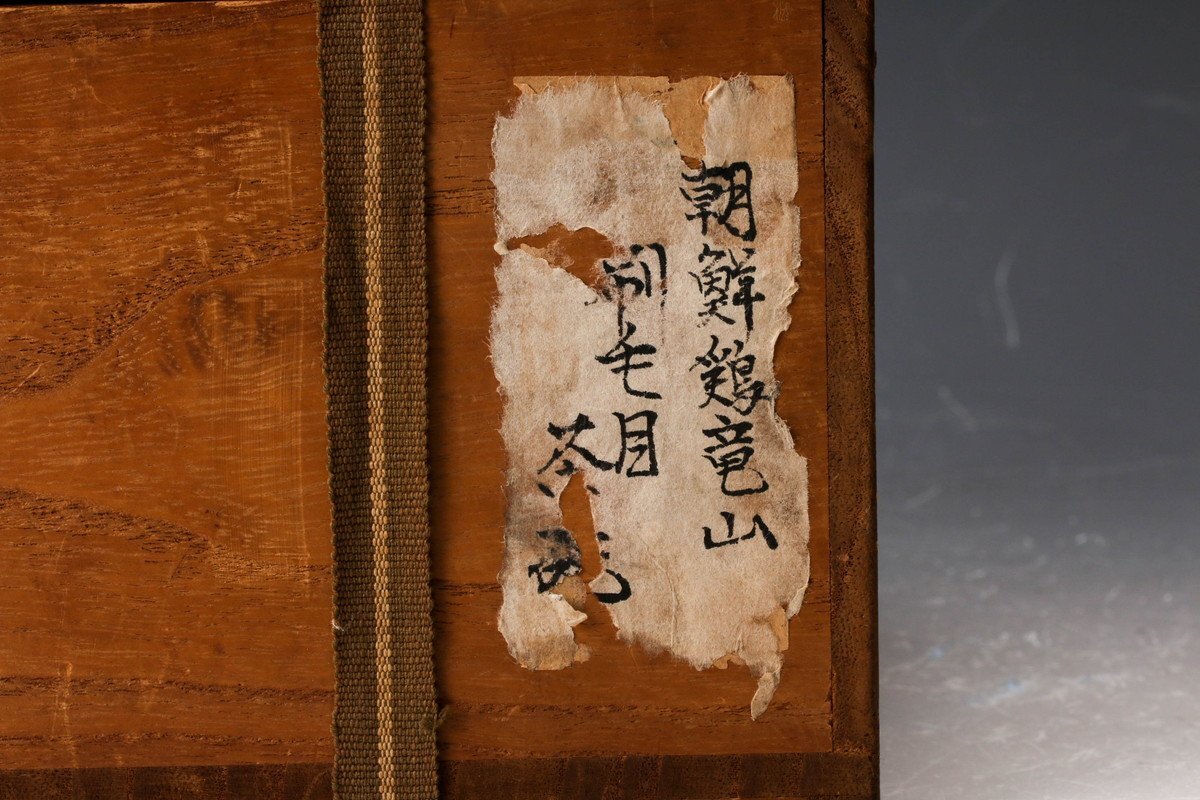 朝鮮鶏竜山
刷毛目
茶碗